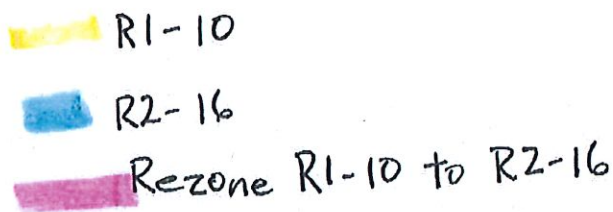 R1-10
R2-16
Rezone R1-10 to R2-16